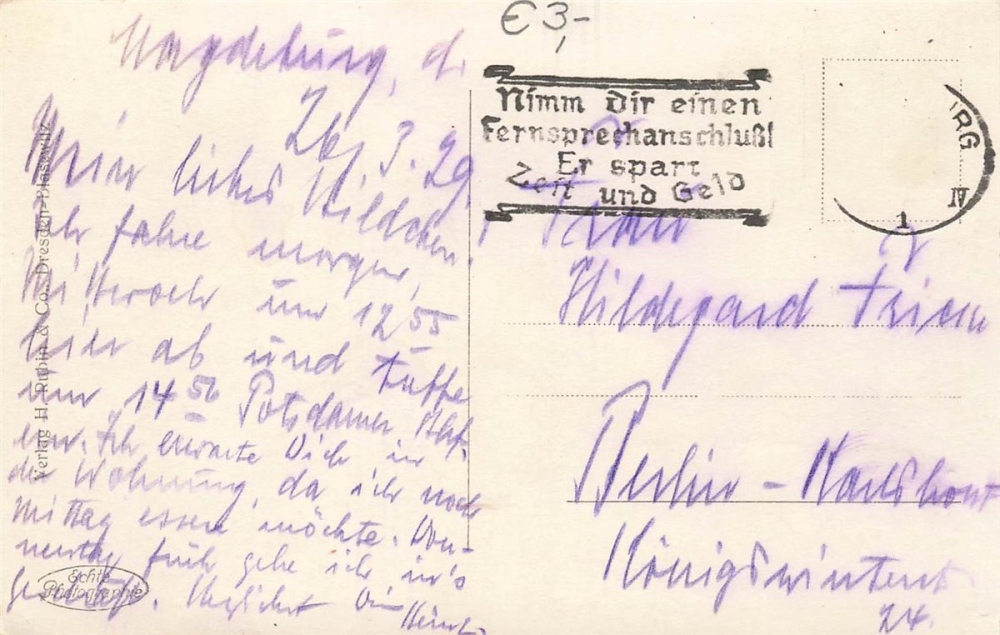 € 3,-
Magdeburg, d.
26. 3. 29.
Mein liebes Hildchen.
Ich fahre morgen,
Mittwoch um 12 55
hier ab und treffe
um 14 56 Potsdamer Bhf.
ein. Ich erwarte Dich in
der Wohnung, da ich noch
Mittag essen möchte. Don-
nerstag früh gehe ich in's
Geschäft. Herzlichst Dein
Heinz
Nimm Dir einen
Fernsprechanschluß!
Er spart
Zeit und Geld
RG
1
IV
Frau
Hildegard
Berlin - Karlshorst
Königswinterst
24.
Verlag H. Rubin & Co., Dresden-Blasewitz
Echte
Photographie